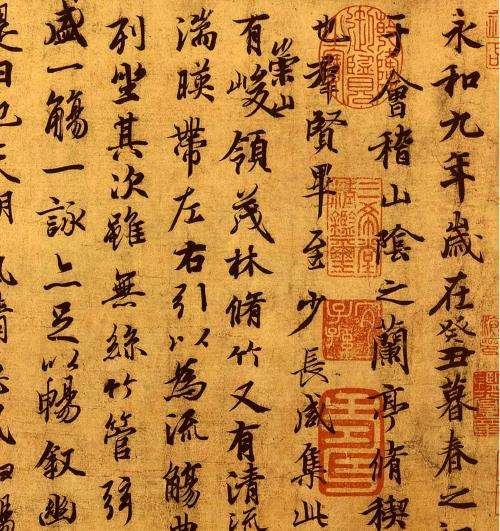 永和九年歲在癸丑暮春之
于會稽山陰之蘭亭脩稧
也羣賢畢至少長咸集此
有崇山峻領茂林脩竹又有清流
湍暎帶左右引以為流觴曲
列坐其次雖無絲竹管弦
盛一觴一詠亦足以暢叙幽
是日也天朗
三希堂精鑒璽
宜子孫